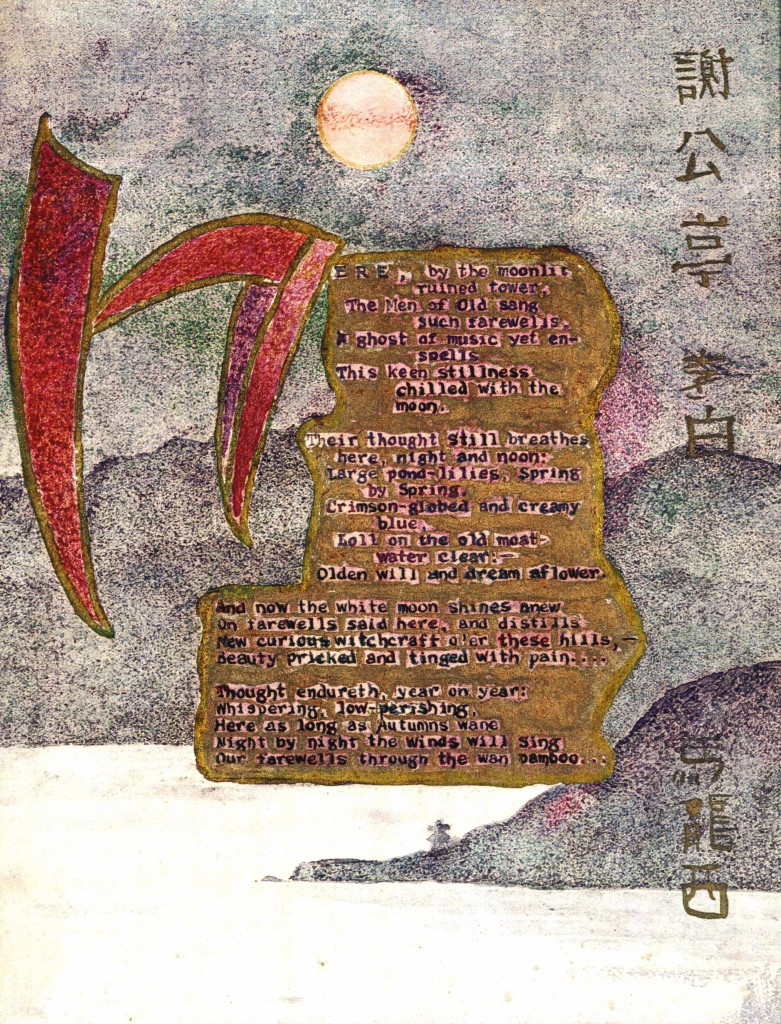 HERE, by the moonlit
ruined tower,
The Men of Old sang
such farewells.
A ghost of music yet en-
spells
This keen stillness
chilled with the
moon.
Their thought still breathes
here, night and noon:
Large pond-lilies, Spring
by Spring,
Crimson-globed and creamy
blue,
Loll on the old moat-
water clear:—
Olden will and dream aflower.
And now the white moon shines anew
On farewells said here, and distills
New curious witchcraft o'er these hills,—
Beauty pricked and tinged with pain....
Thought endureth, year on year:
Whispering, low-perishing,
Here as long as Autumns wane
Night by night the Winds will Sing
Our farewells through the wan bamboo...
謝公亭
李白
馬龍西